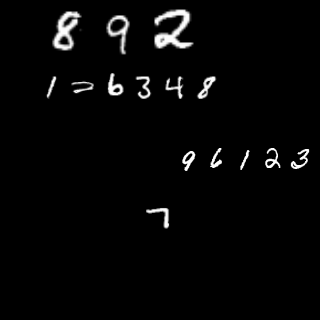 892
1=6348
96123
7